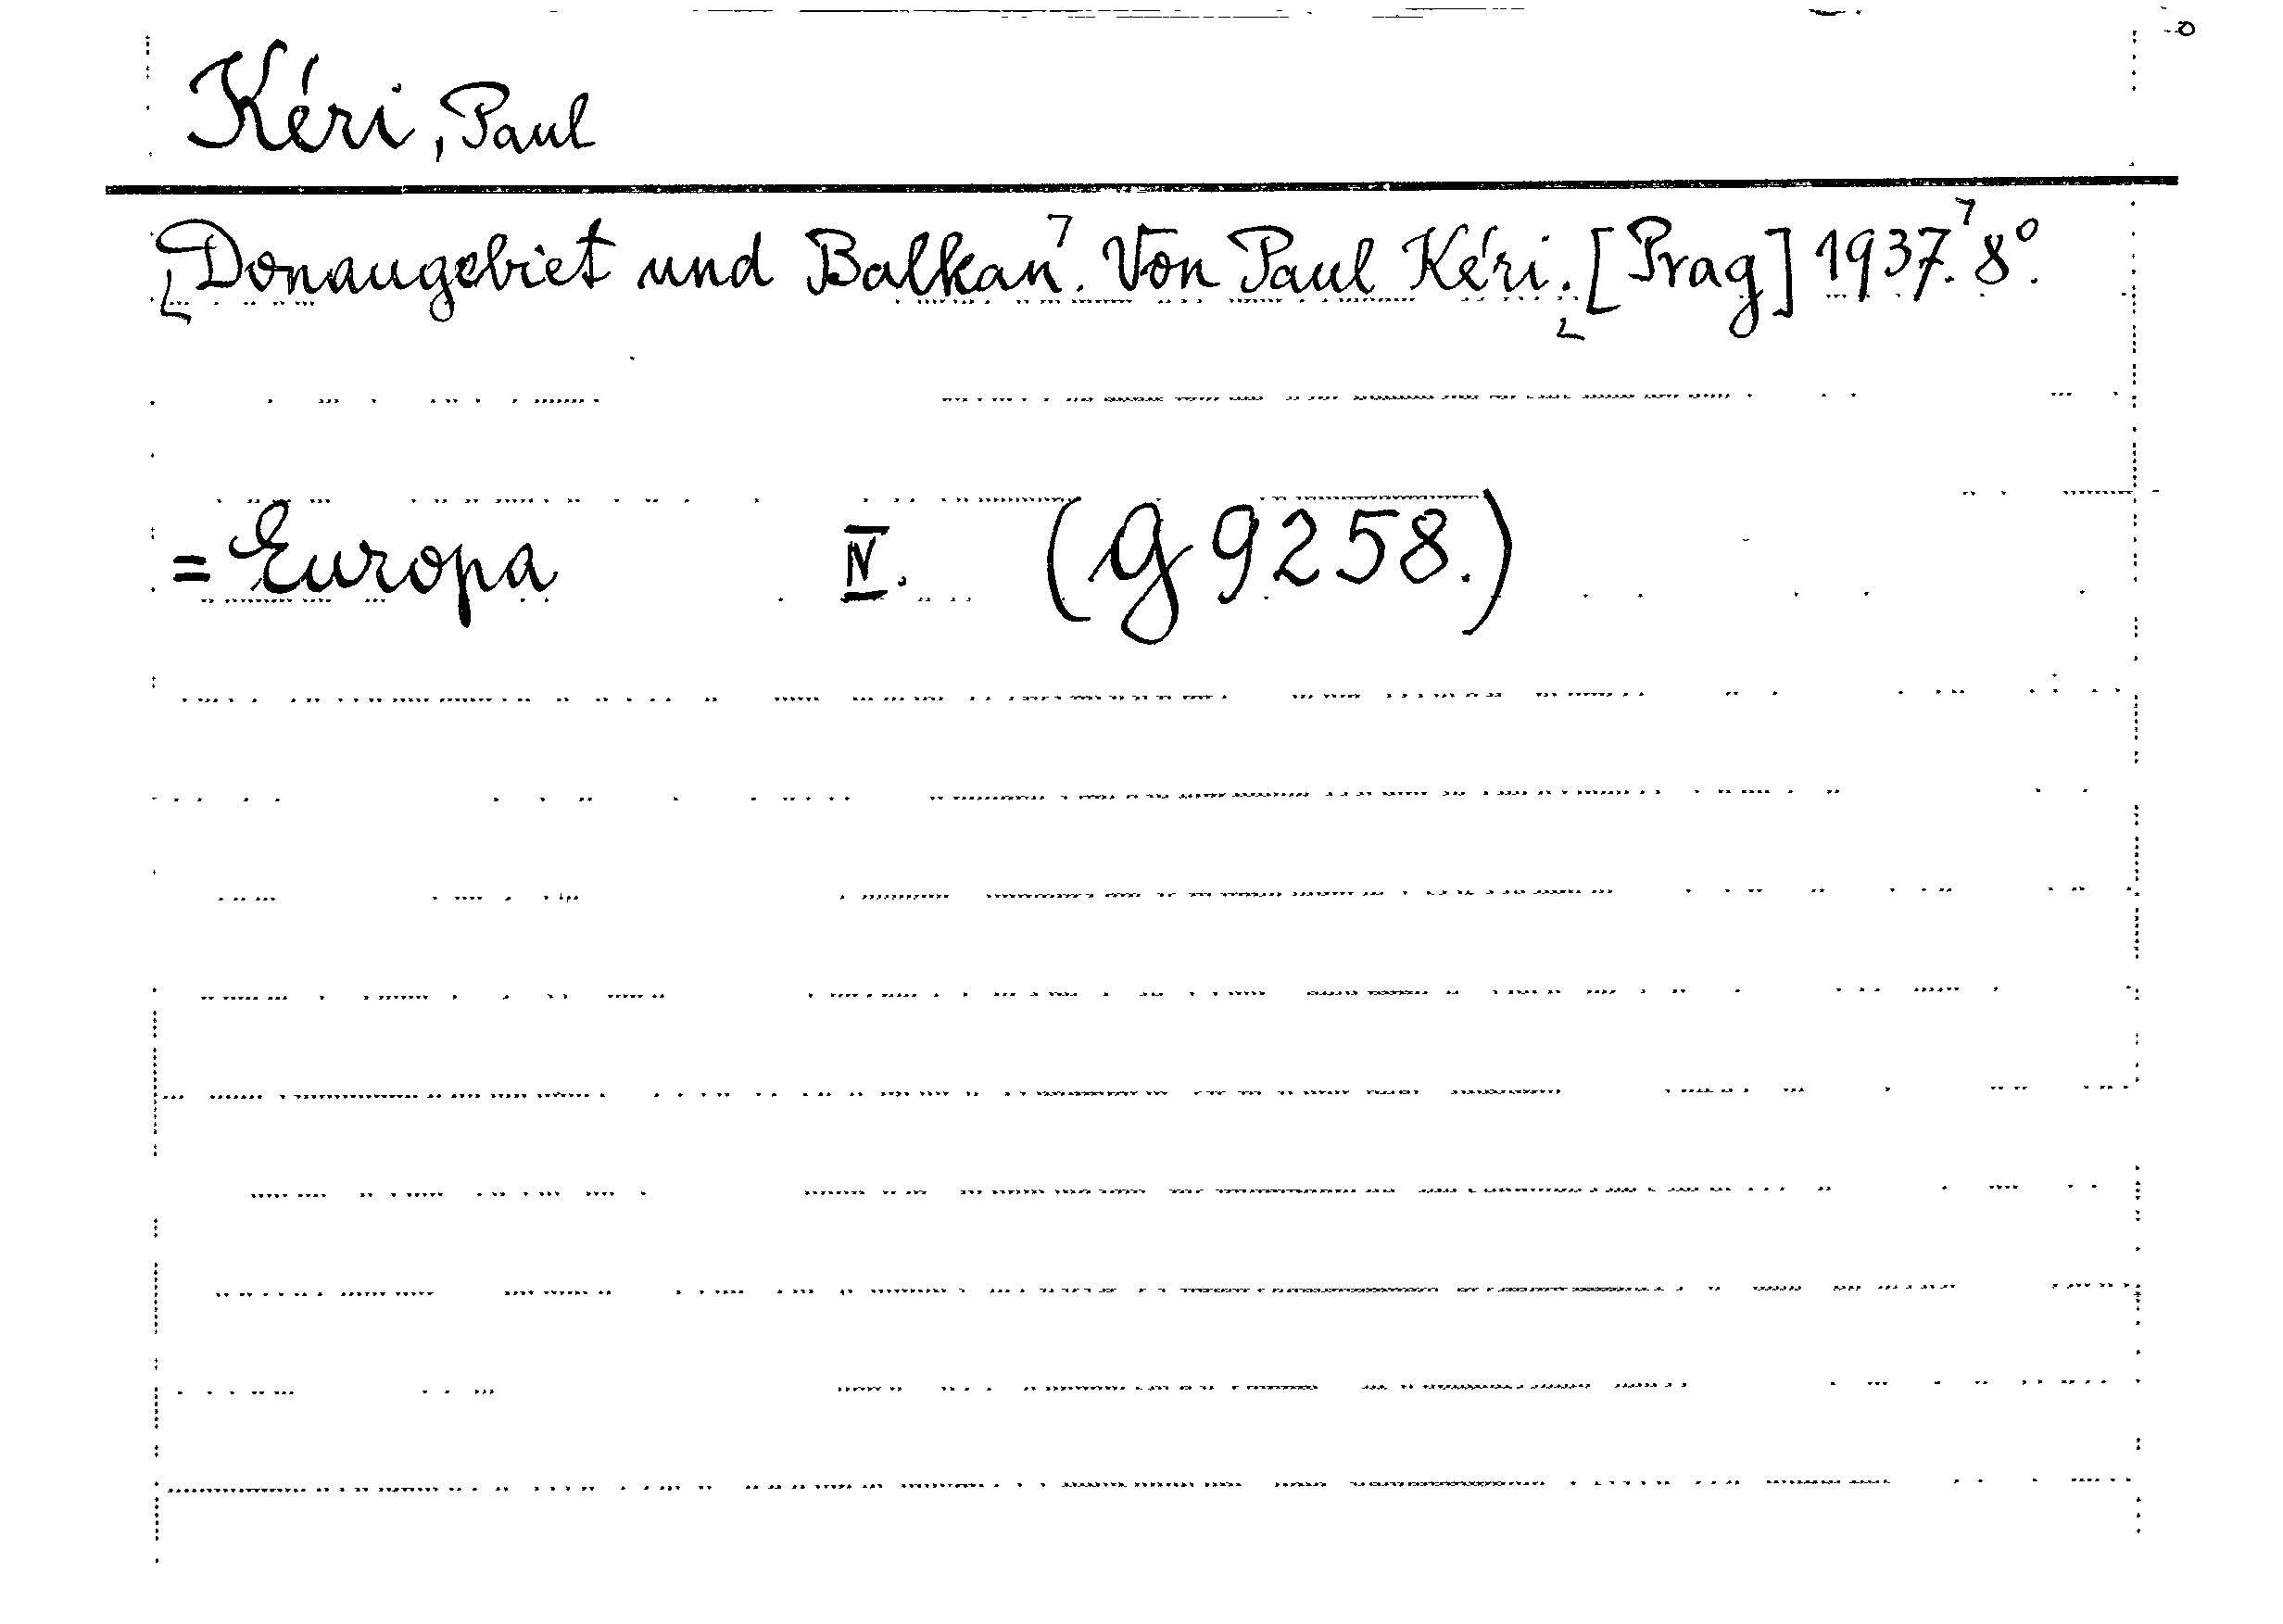 Kéri, Paul
⌊Donaugebiet und Balkan⌉. Von Paul Kéri. ⌊[Prag] 1937.⌉ 8°.
= Europa IV. (G 9258.)